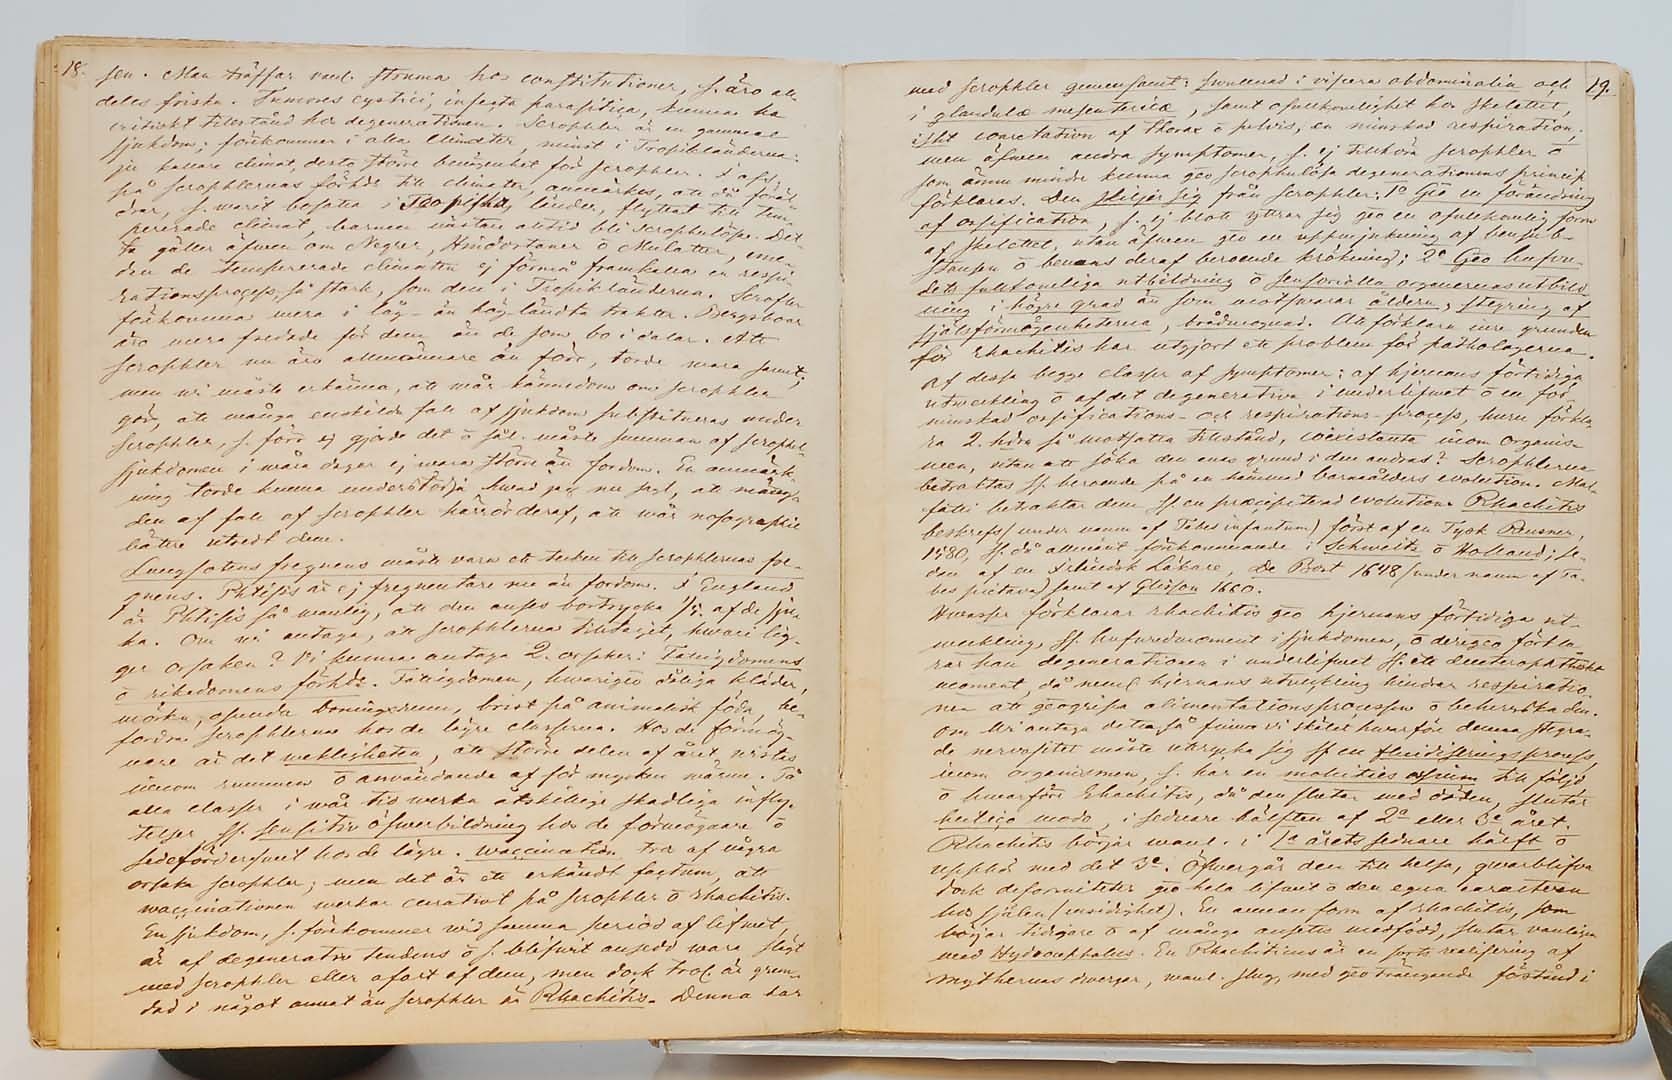 18.
sen. Man träffar vanl. struma hos constitutioner, s. äro all-
deles friska. Tumores cystici, infesta parasitica, kunna ha
critiskt tillstånd hos degenerationen. Scrophler är en gammal
sjukdom; förekommer i alla climater, minst i Tropikländerna:
ju kallare climat, desto större benägenhet för scrophler. I afs.
på scrophlernas förhde till climater, anmärkes, att då föräl-
drar, s. warit bosatta i Tropiska länder, flyttat till tem-
pererade climat, barnen nästan altid bli scrophulösa. Det-
ta gäller äfwen om Negrer, Hindostaner o Mulatter, eme-
dan de tempererade climaten ej förmå framkalla en respi-
rationsprocess, så stark, som den i Tropikländerna. Scrofler
förekomma mera i låg- än hög-ländta trakter. Bergsboar
äro mera fredade för dem, än de som bo i dalar. Att
scrophler nu äro allmännare än förr, torde wara sannt;
men wi måste erkänna, att wår kännedom om scrophler
gör, att många enskilda fall af sjukdom substitueras under
scrophler, s. förr ej gjorde det o fål. måste summan af scrophel-
sjukdomen i wåra dagar ej wara större än fordom. En anmärk-
ning torde kunna understödja hwad jag nu sagt, att mäng-
den af fall af scrophler härrör deraf, att wår nosographie
bättre utredt dem.
Lungsotens freqvens måste vara ett tecken till scrophlernas fre-
qvens. Phtisis är ej freqventare nu än fordom. I England
är Phtisis så wanlig, att den anses bortrycka 1/5 af de sju-
ka. Om wi antaga, att scrophlerna tilltagit, hwari lig-
ger orsaken? Wi kunna antaga 2. orsaker: Fattigdomens
o rikedomens förhde. Fattigdomen, hwarigm dåliga kläder,
mörka, osunda boningsrum, brist på animalisk föda, be-
fordra scrophlerna hos de lägre classerna. Hos de förmög-
nare är det wekligheten, att större delen af året wistas
inom rummen o användande af för mycken wärme. På
alla classer i wår tid werka åtskillige skadliga infly-
telser, ss. sensitiv öfwerbildning hos de förmögnare o
sedeförderfwet hos de lägre. Waccination tros af några
orsaka scrophler; men det är ett erkändt factum, att
waccinationen werkar curativt på scrophler o Rhachitis.
En sjukdom, s. förekommer wid samma period af lifwet,
är af degenerativ tendens o s. blifwit ansedd wara slägt
med scrophler eller afart af dem, men dock trol. är grun-
dad i något annat än scrophler är Rhachitis. Denna har
19.
med scrophler gemensamt: svullnad i viscera abdominalia och
i glandulæ mesentericæ, samt ofullkomlighet hos skelettet,
isht coarctation af thorax o pelvis, en minskad respiration;
men äfwen andra symptomer, s. ej tillhöra scrophler o
som ännu mindre kunna gm scrophulösa degenerationens princip
förklaras. Den skiljer sig från scrophler: 1o Gm en förändring
af ossification, s. ej blott yttrar sig gm en ofullkomlig form
af skelettet, utan äfwen gm en uppmjukning af bensub-
stansen o benens deraf beroende krökning; 2o Gm hufwu-
dets fullkomliga utbildning o sensoriella organernas utbild-
ning i högre grad än som motswarar åldern, stegring af
själsförmögenheterna, brådmognad. Att förklara inre grunden
för Rhachitis har utgjort ett problem för pathologerna.
Af dessa begge classer af symptomer: af hjernans förtidiga
utweckling o af det degenerativa i underlifwet o en för-
minskad ossifications- och respirations-process, huru förkla-
ra 2. hdra så motsatta tillstånd, coexistanta inom organis-
men, utan att söka den enas grund i den andras? Scrophlerna
betraktas ss. beroende på en hämmad barnaålders evolution. Mal-
fatti betraktar dem ss. en præcipiterad evolution. Rhachitis
beskrefs (under namn af Tabes infantum) först af en Tysk Reusner,
1580, ss. då allmänt förekommande i Schweitz o Holland; se-
dan af en Fransk Läkare, De Boot 1648 (under namn af Ta-
bes pictava) samt af Glisson 1660.
Hwasser förklarar rhachitis gm hjernans förtidiga ut-
weckling, ss. hufwudmoment i sjukdomen, o derigm förkla-
rar han degenerationen i underlifwet ss. ett deuteropathiskt
moment, då neml. hjernans utveckling hindrar respiratio-
nen att gmgripa alimentationsprocessen o beherrska den.
Om Wi antaga detta, så finna vi skälet hwarför denna stegra-
de nervositet måste uttrycka sig ss. en fluidiseringsprocess
inom organismen, s. har en mollities ossium till följd
o hwarföre Rhachitis, då den slutar med döden, slutar
hectico modo, i sednare hälften af 2a eller 3e året.
Rhachitis börjar wanl. i 1a årets sednare hälft o
upphör med det 3e. Öfwergår den till helsa, qwarblifwa
dock deformiteter gm hela lifwet o den egna caracteren
hos själen (ensidighet). En annan form af rhachitis, som
börjar tidigare o af många ansetts medfödd, slutar vanligen
med Hydrocephalus. En Rhachiticus är en sorts realisering af
mythernas dwergar, wanl. slug, med gmträngande förstånd i